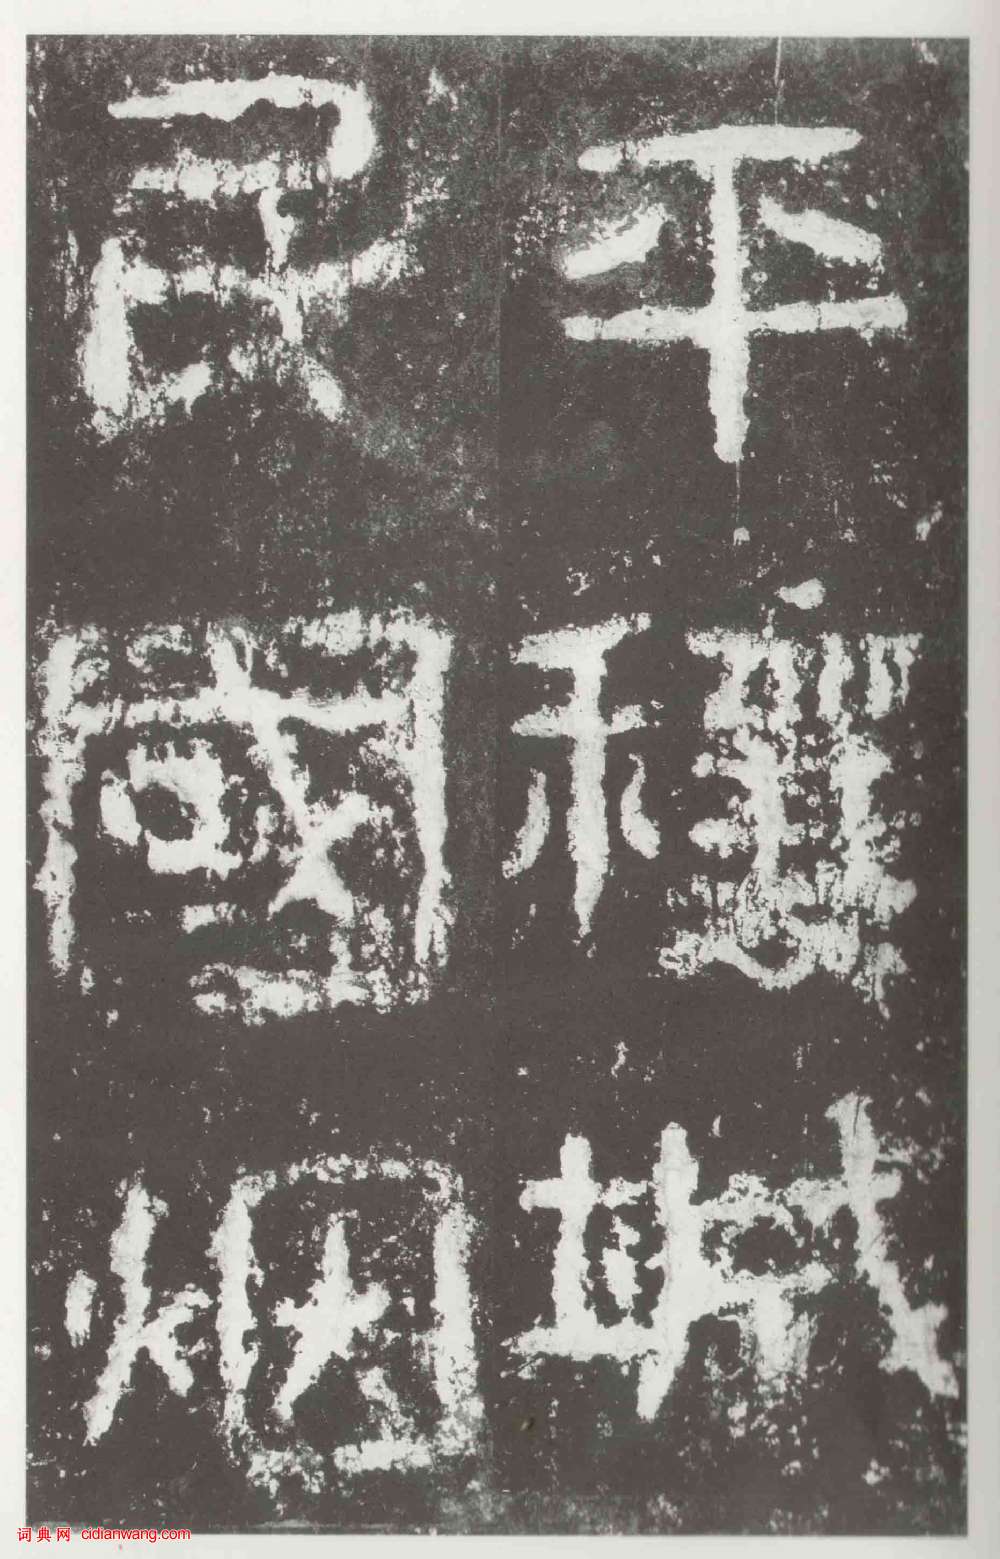 平穰城
民國烟
词典网 cidianwang.com